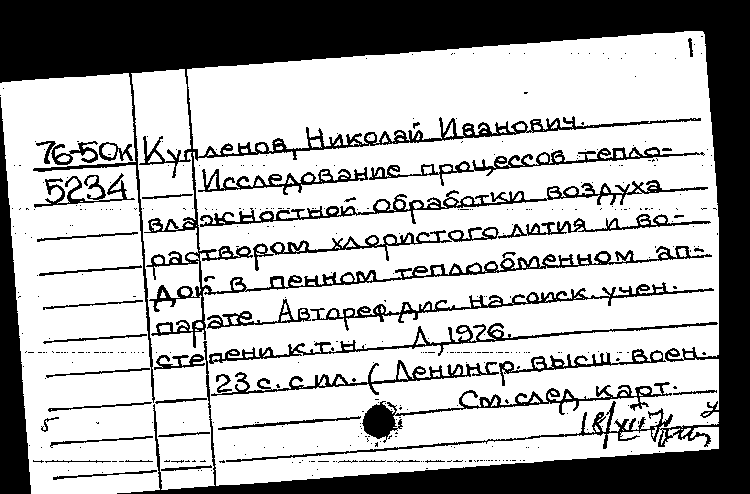 1
76-50к Купленов, Николай Иванович.
5234 Исследование процессов тепло-
влажностной обработки воздуха
раствором хлористого лития и во-
дой в пенном теплообменном ап-
парате. Автореф. дис. на соиск. учен.
степени к.т.н. Л., 1976.
23 с. с ил. (Ленингр. высш. воен.
См. след. карт.
5
18/XII